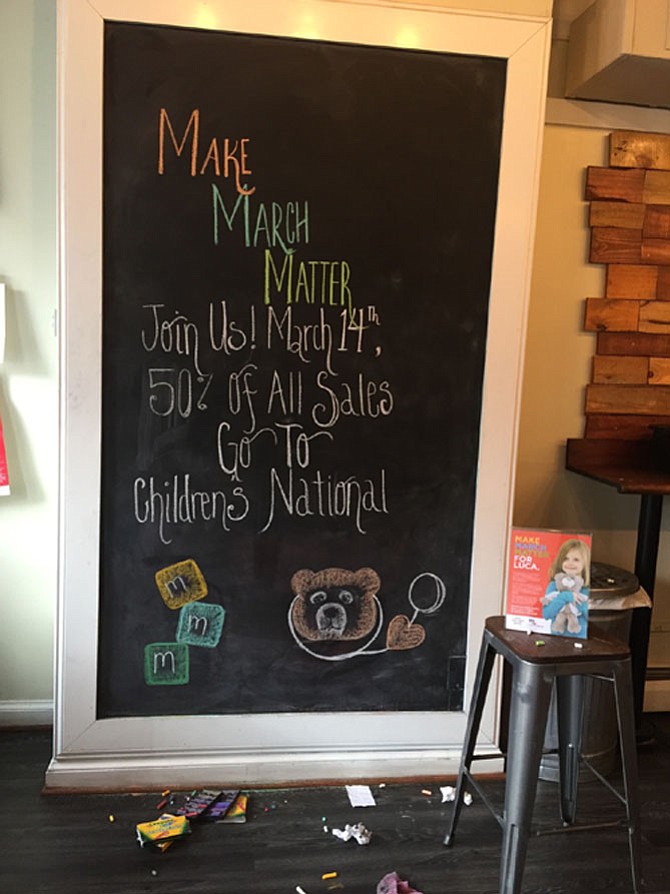 Make
March
Matter
Join Us! March 14th,
50% of All Sales
Go To
Children's National
m
m
m
MAKE
MARCH
MATTER
FOR
LUCA.